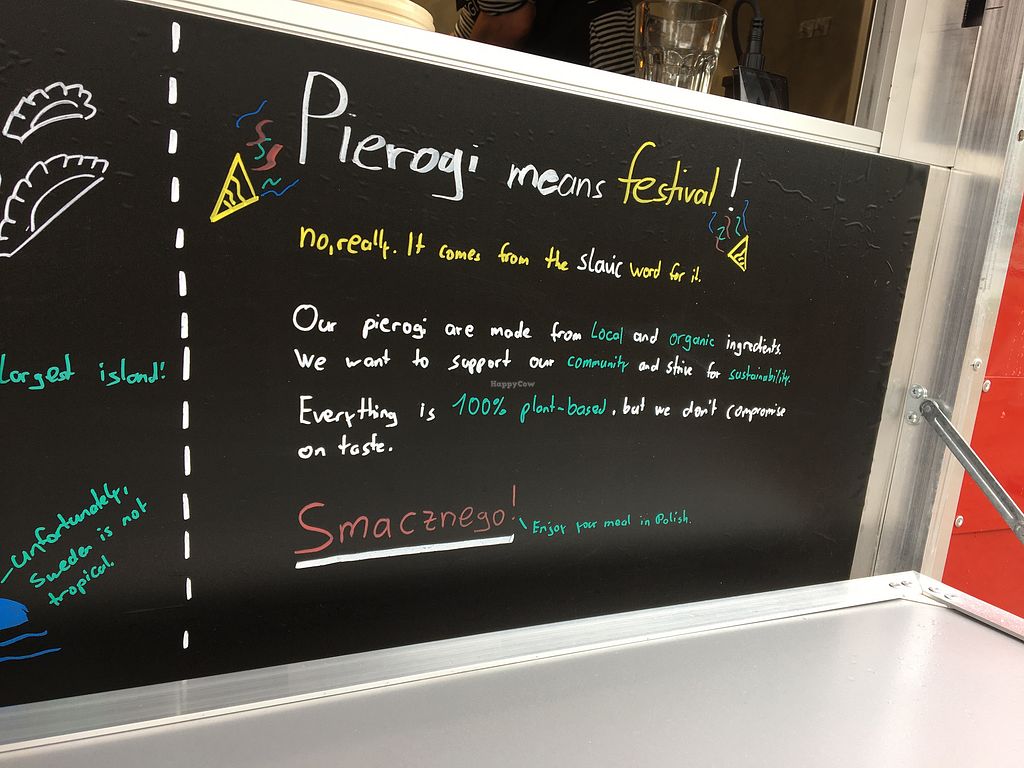 Pierogi means festival!
no, really. It comes from the slavic word for it.
Our pierogi are made from local and organic ingredients.
We want to support our community and strive for sustainability.
Everything is 100% plant-based, but we don't compromise
on taste.
Smacznego!
Enjoy your meal in Polish.
largest island!
-unfortunately,
Sweden is not
tropical.
HappyCow